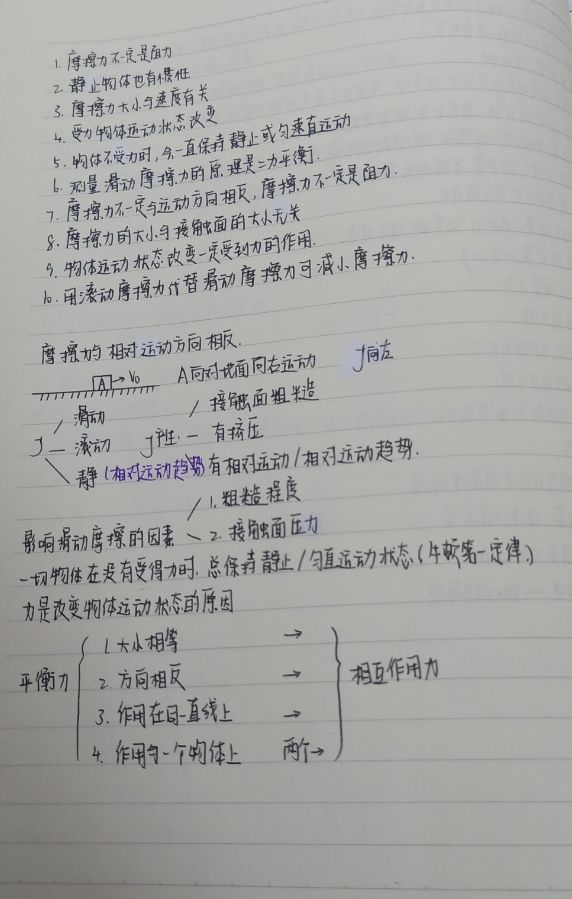 1. 摩擦力不一定是阻力
2. 静止物体也有惯性
3. 摩擦力大小与速度有关
4. 受力物体运动状态改变
5. 物体不受力时,会一直保持静止或匀速直运动
6. 测量滑动摩擦力的原理是二力平衡
7. 摩擦力不一定与运动方向相反,摩擦力不一定是阻力.
8. 摩擦力的大小与接触面的大小无关
9. 物体运动状态改变一定受到力的作用.
10. 用滚动摩擦力代替滑动摩擦力可减小摩擦力.
摩擦力与相对运动方向相反.
A → V₀ A向对地面向右运动 f向左
滑动 接触面粗糙
f — 滚动 f产生 — 有挤压
静(相对运动趋势) 有相对运动/相对运动趋势.
1. 粗糙程度
影响滑动摩擦的因素
2. 接触面压力
一切物体在没有受得力时,总保持静止/匀直运动状态(牛顿第一定律)
力是改变物体运动状态的原因
1. 大小相等 →
平衡力 2. 方向相反 → 相互作用力
3. 作用在同一直线上 →
4. 作用与一个物体上 两个→